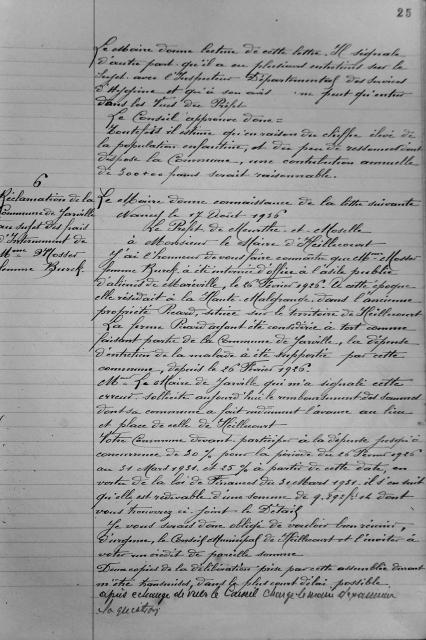 25
Le Maire donne lecture de cette lettre. Il signale
d'autre part qu'il a eu plusieurs entretiens sur le
sujet avec l'Inspecteur Départemental des Services
d'Hygiène et qu'à son avis on ne peut qu'entrer
dans les vues du Préfet
Le Conseil approuve donc =
Toutefois il estime qu'en raison du chiffre élevé de
la population enfantine, et du peu de ressources dont
dispose la Commune, une contribution annuelle
de francs serait raisonnable.
6
Réclamation de la
Commune de Jarville
au sujet des frais
d'Internement de
Mme Mosser
femme Burck.
Le Maire donne connaissance de la lettre suivante
Nancy le 17 Août 1936
Le Préfet de Meurthe-et-Moselle
à Monsieur le Maire d'Heillecourt
J'ai l'honneur de vous faire connaître que Mme Mosser
femme Burck a été internée d'office à l'asile public
d'aliénés de Maréville, le 26 Février 1926. A cette époque
elle résidait à la Haute Malgrange, dans l'ancienne
propriété Picard, située sur le territoire de Heillecourt
La ferme Picard ayant été considérée à tort comme
faisant partie de la Commune de Jarville, la dépense
d'entretien de la malade a été supportée par cette
commune, depuis le 26 Février 1926.
Mr Le Maire de Jarville qui m'a signalé cette
erreur, sollicite aujourd'hui le remboursement des sommes
dont sa commune a fait indûment l'avance au lieu
et place de celle de Heillecourt
Votre Commune devant participer à la dépense jusqu'à
concurrence de 30 % pour la période du 26 Février 1926
au 31 Mars 1931 et 25 % à partir de cette date, en
vertu de la loi de Finances du 31 Mars 1931, il s'en suit
qu'elle est redevable d'une somme de dont
vous trouverez ci-joint le Détail
Je vous serais donc obligé de vouloir bien réunir,
d'urgence, le Conseil Municipal de Heillecourt et l'inviter à
voter un crédit de pareille somme
Deux copies de la délibération prise par cette assemblée devront
m'être transmises, dans le plus court délai possible
après échange de vues le Conseil charge le maire d'examiner
la question